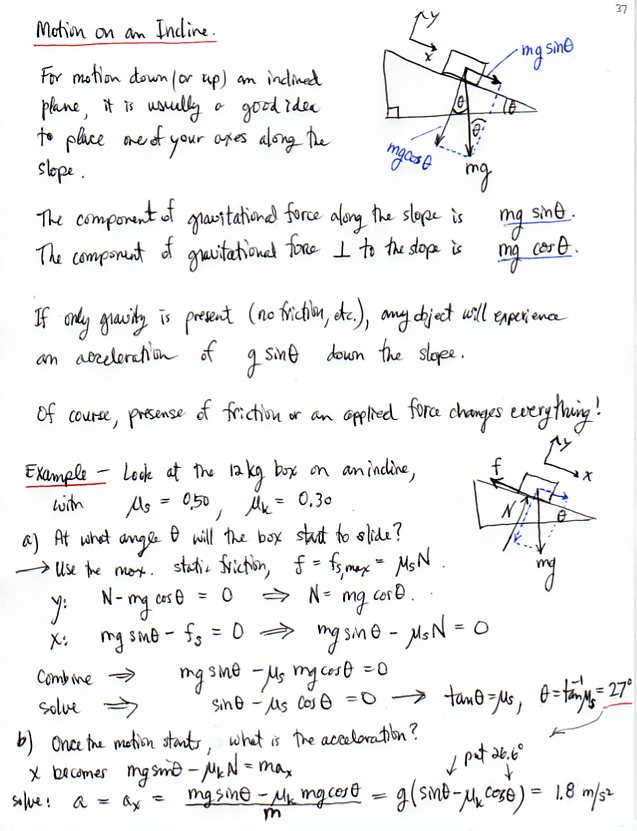 37
Motion on an Incline.
y
x
mg sinθ
θ
θ
θ
mg cosθ
mg
For motion down (or up) an inclined
plane, it is usually a good idea
to place one of your axes along the
slope.
The component of gravitational force along the slope is mg sinθ.
The component of gravitational force ⊥ to the slope is mg cosθ.
If only gravity is present (no friction, etc.), any object will experience
an acceleration of g sinθ down the slope.
Of course, presense of friction or an applied force changes everything!
Example – Look at the 12 kg box on an incline,
with μs = 0.50, μk = 0.30
y
x
f
N
θ
mg
a) At what angle θ will the box start to slide?
→ Use the max. static friction, f = fs,max = μsN.
y: N - mg cosθ = 0 ⇒ N = mg cosθ.
x: mg sinθ - fs = 0 ⇒ mg sinθ - μsN = 0
Combine ⇒ mg sinθ - μs mg cosθ = 0
solve ⇒ sinθ - μs cosθ = 0 → tanθ = μs, θ = tan⁻¹μs = 27°
b) Once the motion starts, what is the acceleration?
put 26.6°
x becomes mg sinθ - μkN = max
solve: a = ax = mg sinθ - μk mg cosθ / m = g(sinθ - μk cosθ) = 1.8 m/s²